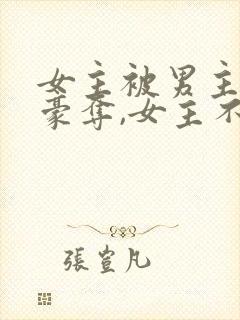 女主被男主
豪夺,女主不
張萱凡